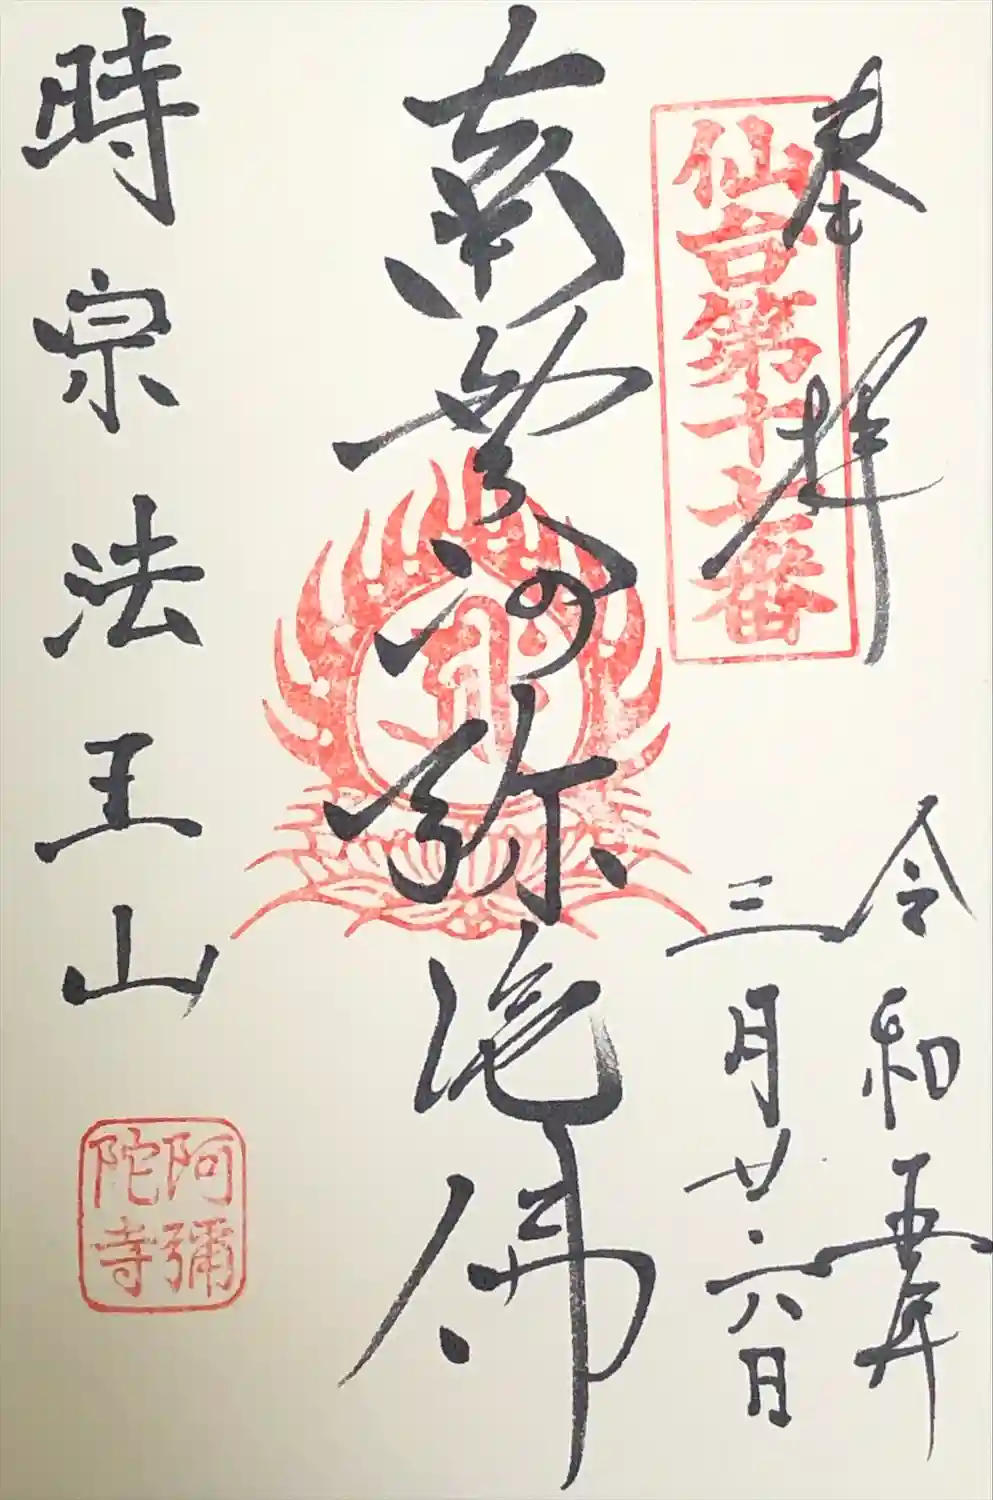 奉拝
仙台第十七番
令和五年
三月廿六日
南無阿弥陀佛
時宗法王山
阿彌
陀寺